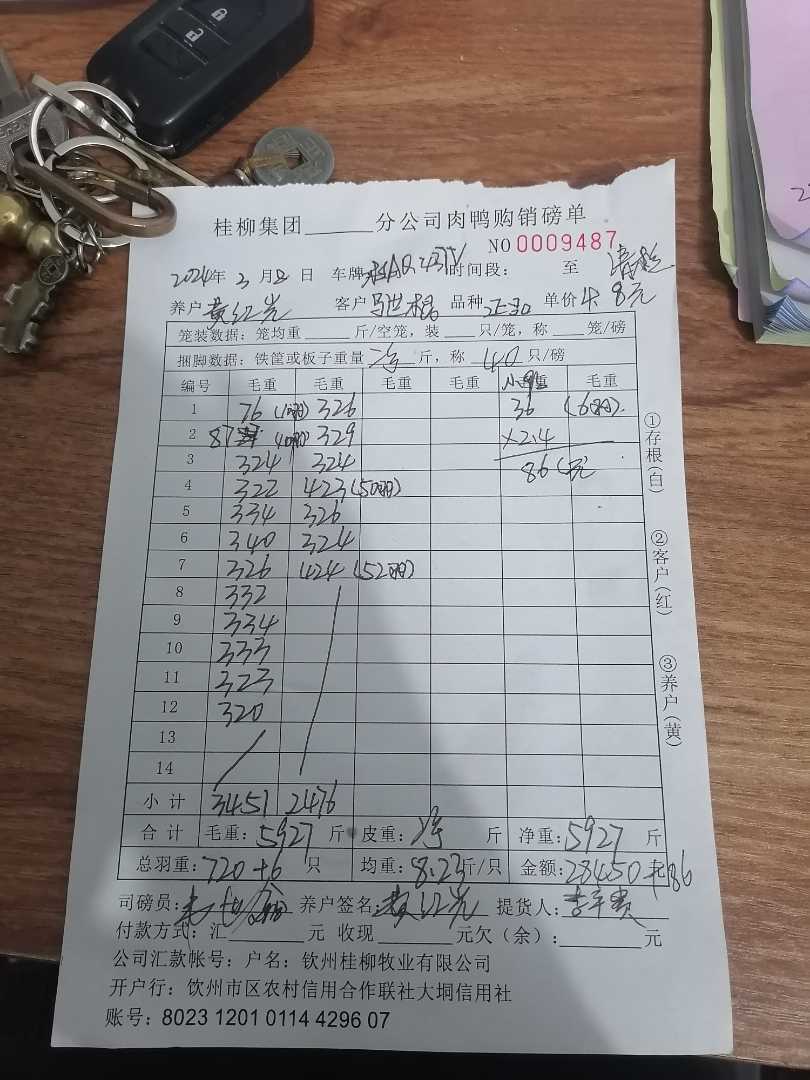 桂柳集团______分公司肉鸭购销磅单
NO 0009487
2024年 3 月 8 日 车牌 时间段: 至
养户 黄红光 客户 品种 正品 单价 4.8元
笼装数据: 笼均重____斤/空笼, 装____只/笼, 称____笼/磅
捆脚数据: 铁筐或板子重量 净 斤, 称 40 只/磅
编号 毛重 毛重 毛重 毛重 毛重 毛重
1 76 326 36 (6羽)
2 87 329 ×2.4
3 324 324 86(元)
4 322 423(50羽)
5 334 326
6 340 324
7 326 424 (52羽)
8 332
9 334
10 333
11 323
12 320
13
14
小计 3451 2476
合计 毛重: 5927 斤 皮重: 净 斤 净重: 5927 斤
总羽重: 720+6 只 均重: 8.23斤/只 金额: 28450+86
司磅员: 养户签名: 黄红光 提货人:
付款方式: 汇______元 收现______元欠(余): ______元
公司汇款帐号: 户名: 钦州桂柳牧业有限公司
开户行: 饮州市区农村信用合作联社大垌信用社
账号: 8023 1201 0114 4296 07
①存根(白)
②客户(红)
③养户(黄)